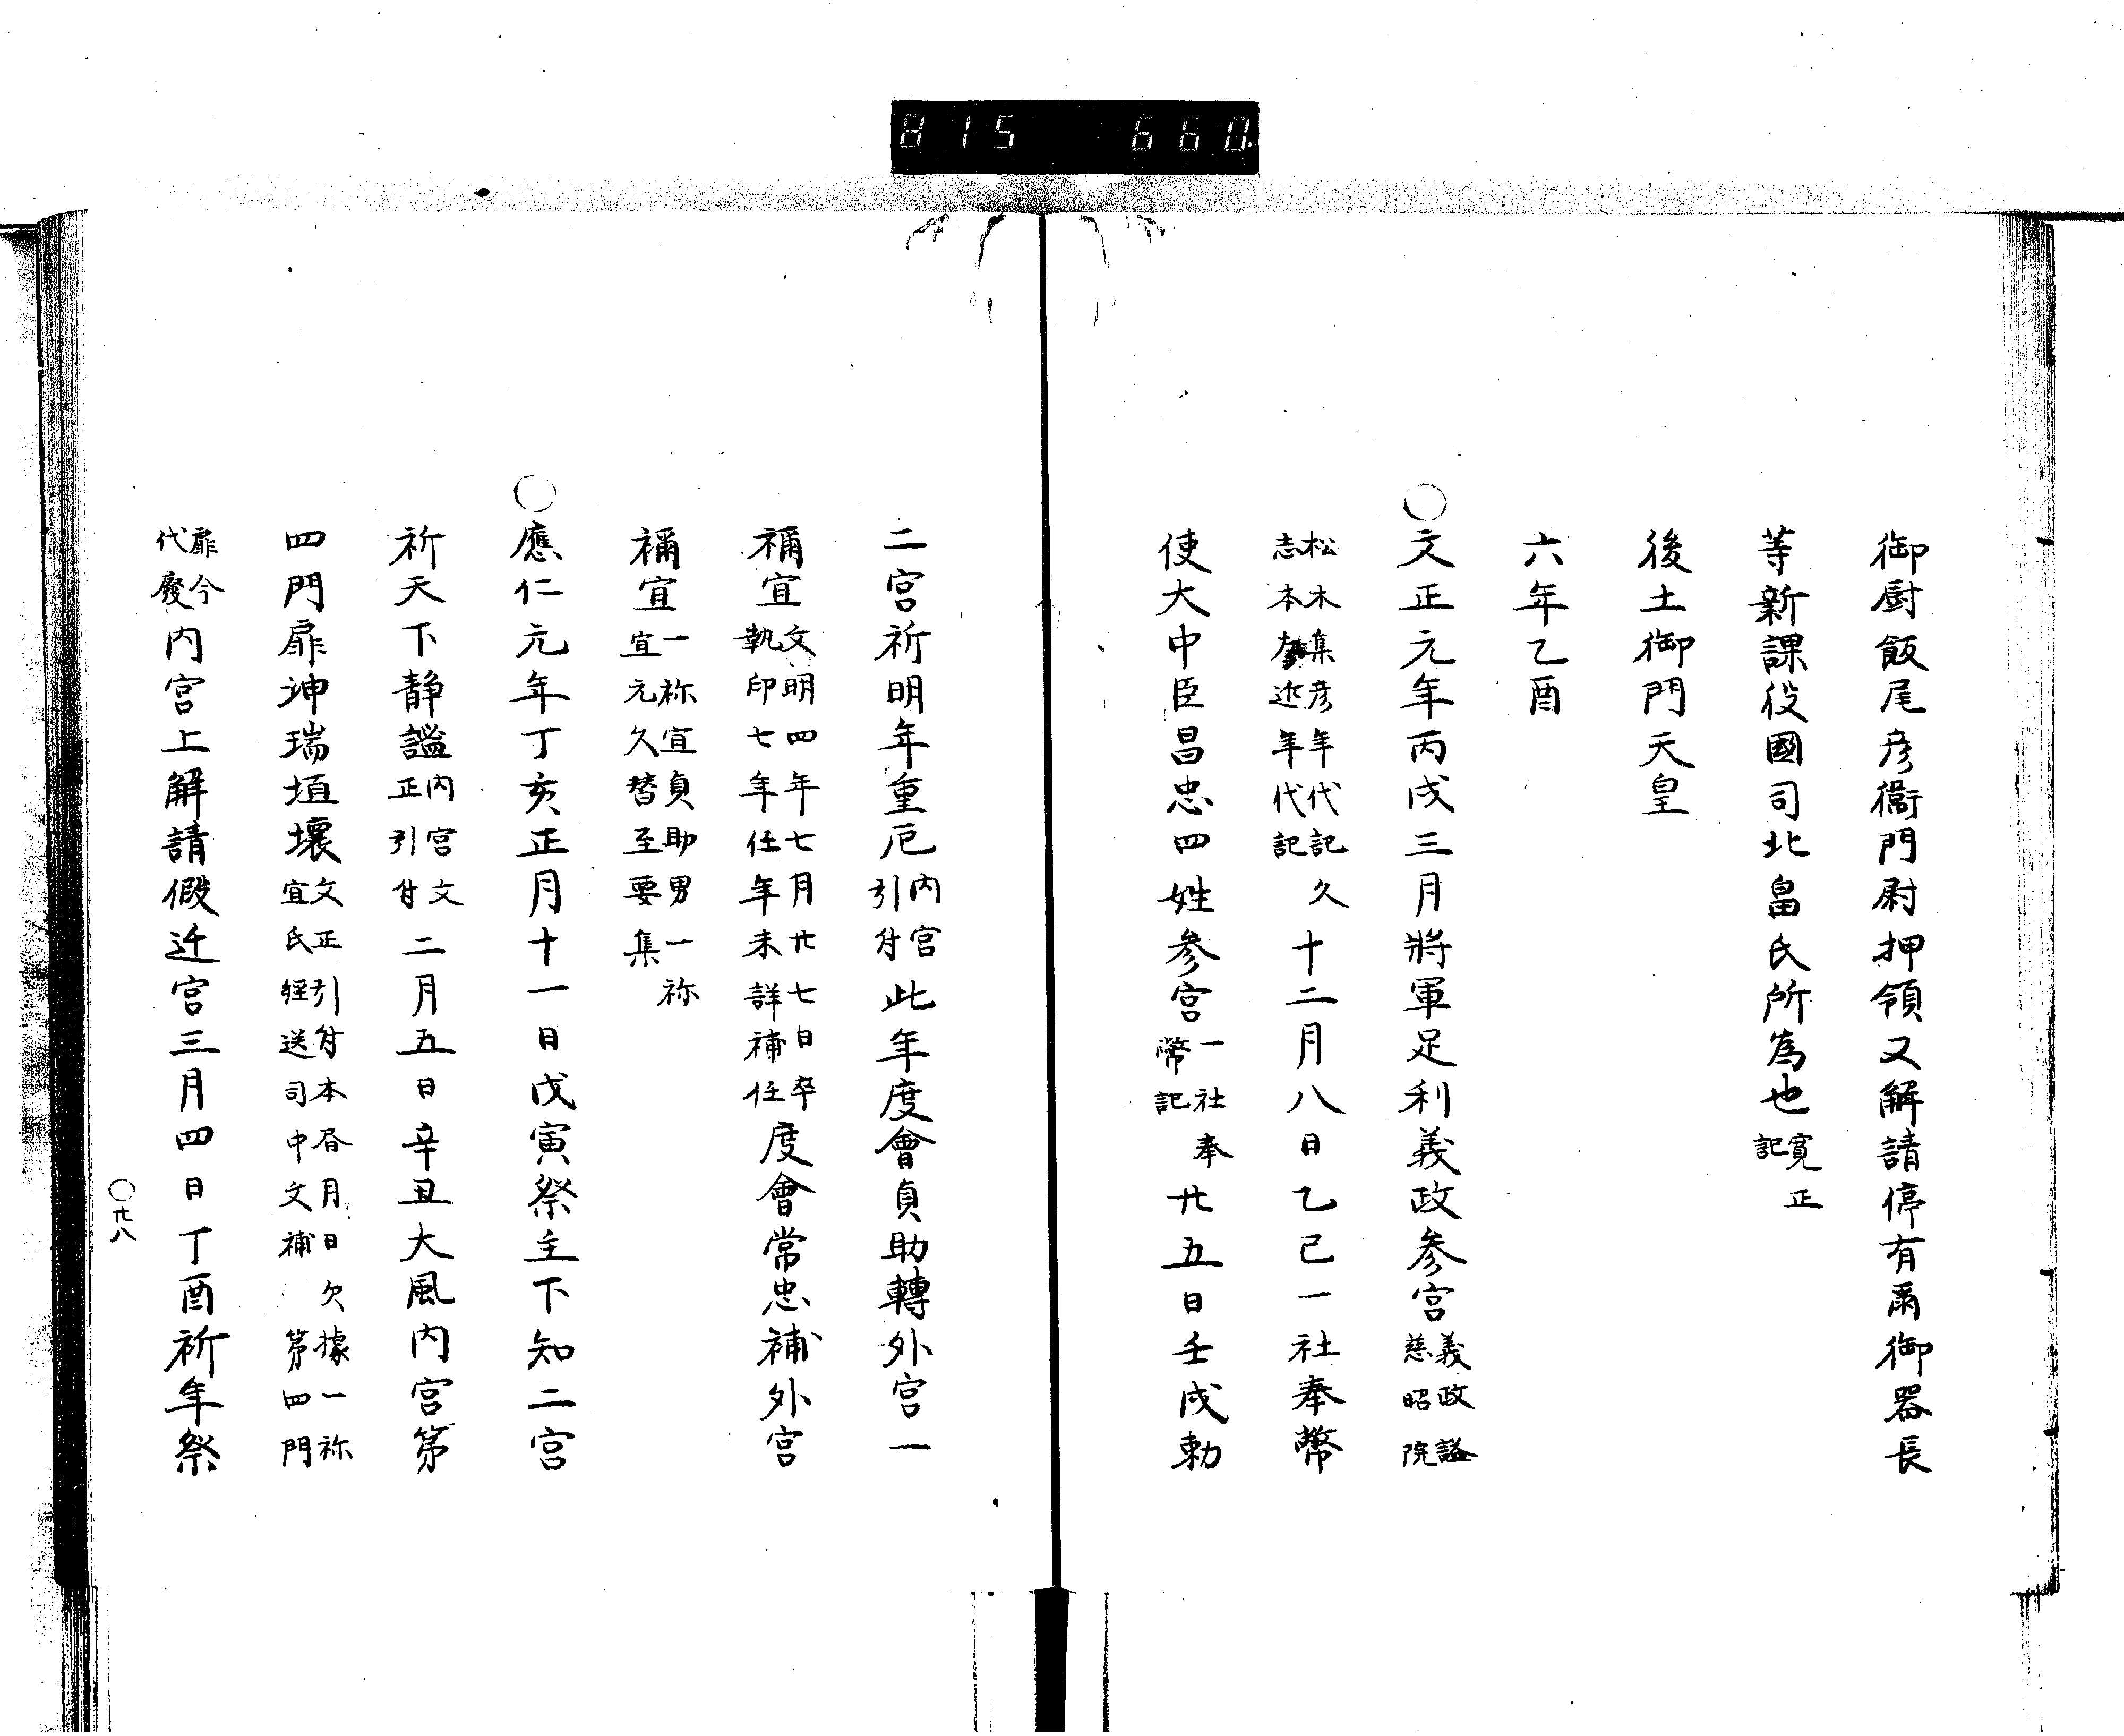 815 660.
御厨飯尾彦衞門尉押領又解請停有爾御器長
等新課役國司北畠氏所為也寛正
記
後土御門天皇
六年乙酉
〇文正元年丙戌三月將軍足利義政参宮義政謚
慈昭院
松木集彦年代記
志本近年代記
久十二月八日乙巳一社奉幣
使大中臣昌忠四姓参宮一社奉
幣記
廿五日壬戌勅
二宮祈明年重厄内宮
引付
此年度會貞助轉外宮一
禰宜文明四年七月廿七日卒
執印七年任年未詳補任
度會常忠補外宮
禰宜一祢宜貞助男一祢
宜元久替至要集
〇應仁元年丁亥正月十一日戊寅祭主下知二宮
祈天下静謐内宮文
正引付
二月五日辛丑大風内宮第
四門扉坤瑞垣壞文正引付本昬月日欠據一祢
宜氏経送司中文補 第四門
扉今
代廢
内宮上解請假迁宮三月四日丁酉祈年祭
〇廿八